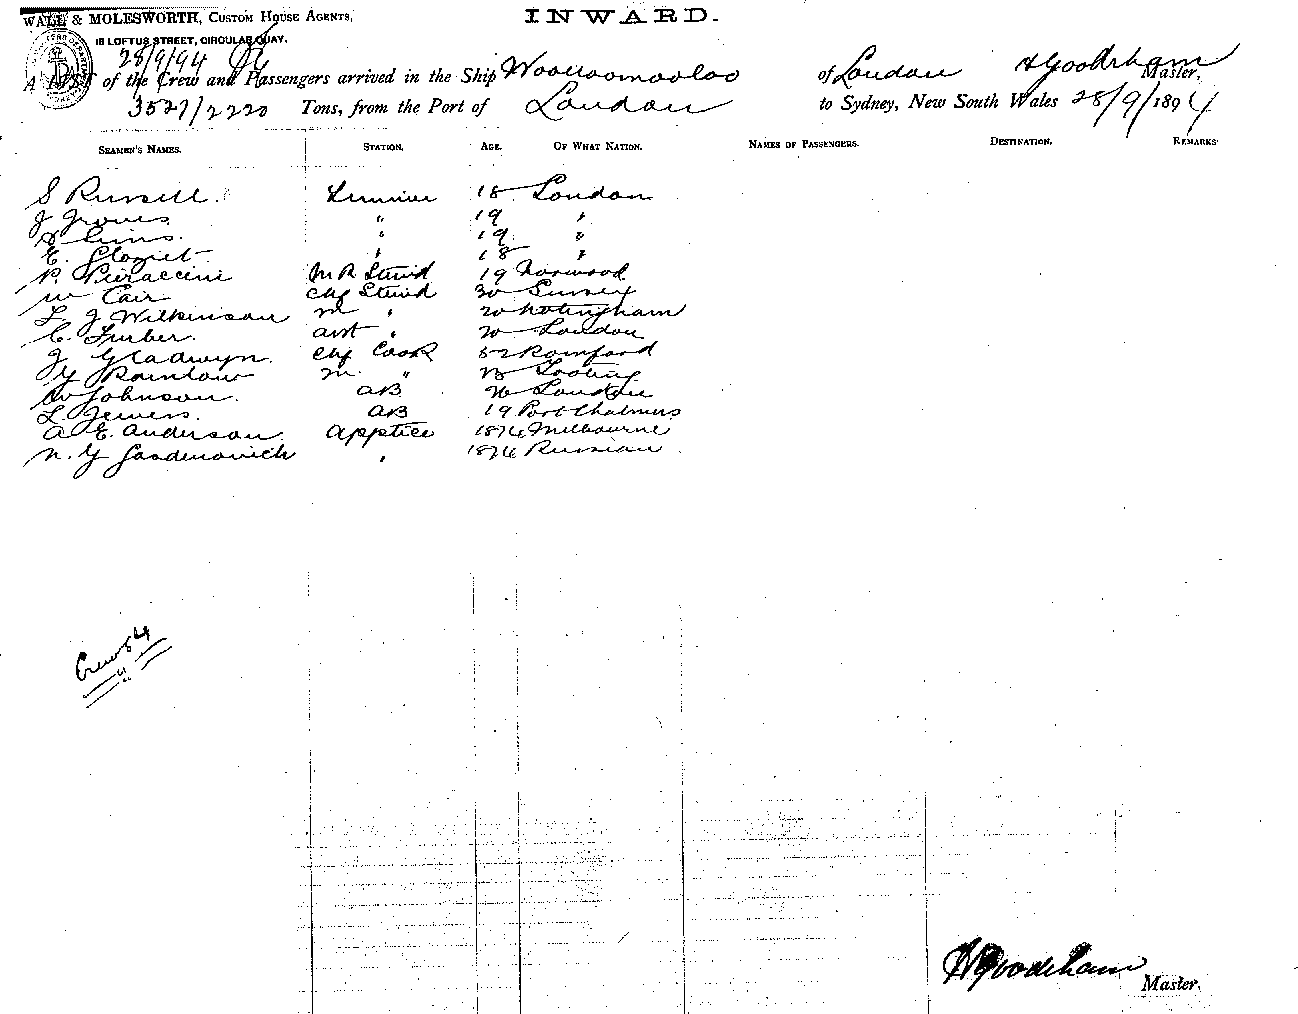 WALL & MOLESWORTH, CUSTOM HOUSE AGENTS,
INWARD.
18 LOFTUS STREET, CIRCULAR QUAY.
28/9/94
A LIST of the Crew and Passengers arrived in the Ship Woolloomooloo of London H Goodrham Master,
3527/2220 Tons, from the Port of London to Sydney, New South Wales 28/9/1894
SEAMEN'S NAMES. STATION. AGE. OF WHAT NATION. NAMES OF PASSENGERS. DESTINATION. REMARKS
S Russell Trimmer 18 London
J Groves " 19 "
Sims " 19 "
E. " 18 "
P. Pieraccini M R Stwd 19 Norwood
W Cair Chf Stwd 30 Surrey
L J Wilkinson M " 20 Notingham
C. Furber Asst " 20 London
J Gladwyn Chf Cook 52 Romford
Y Rainbow M. " Tooting
W Johnson AB London
L. Jewers AB 19 Port Chalmers
A E. Anderson Apptice 1876 Melbourne
N. Y " 1876 Russian
Crew 84
H Goodrham
Master.